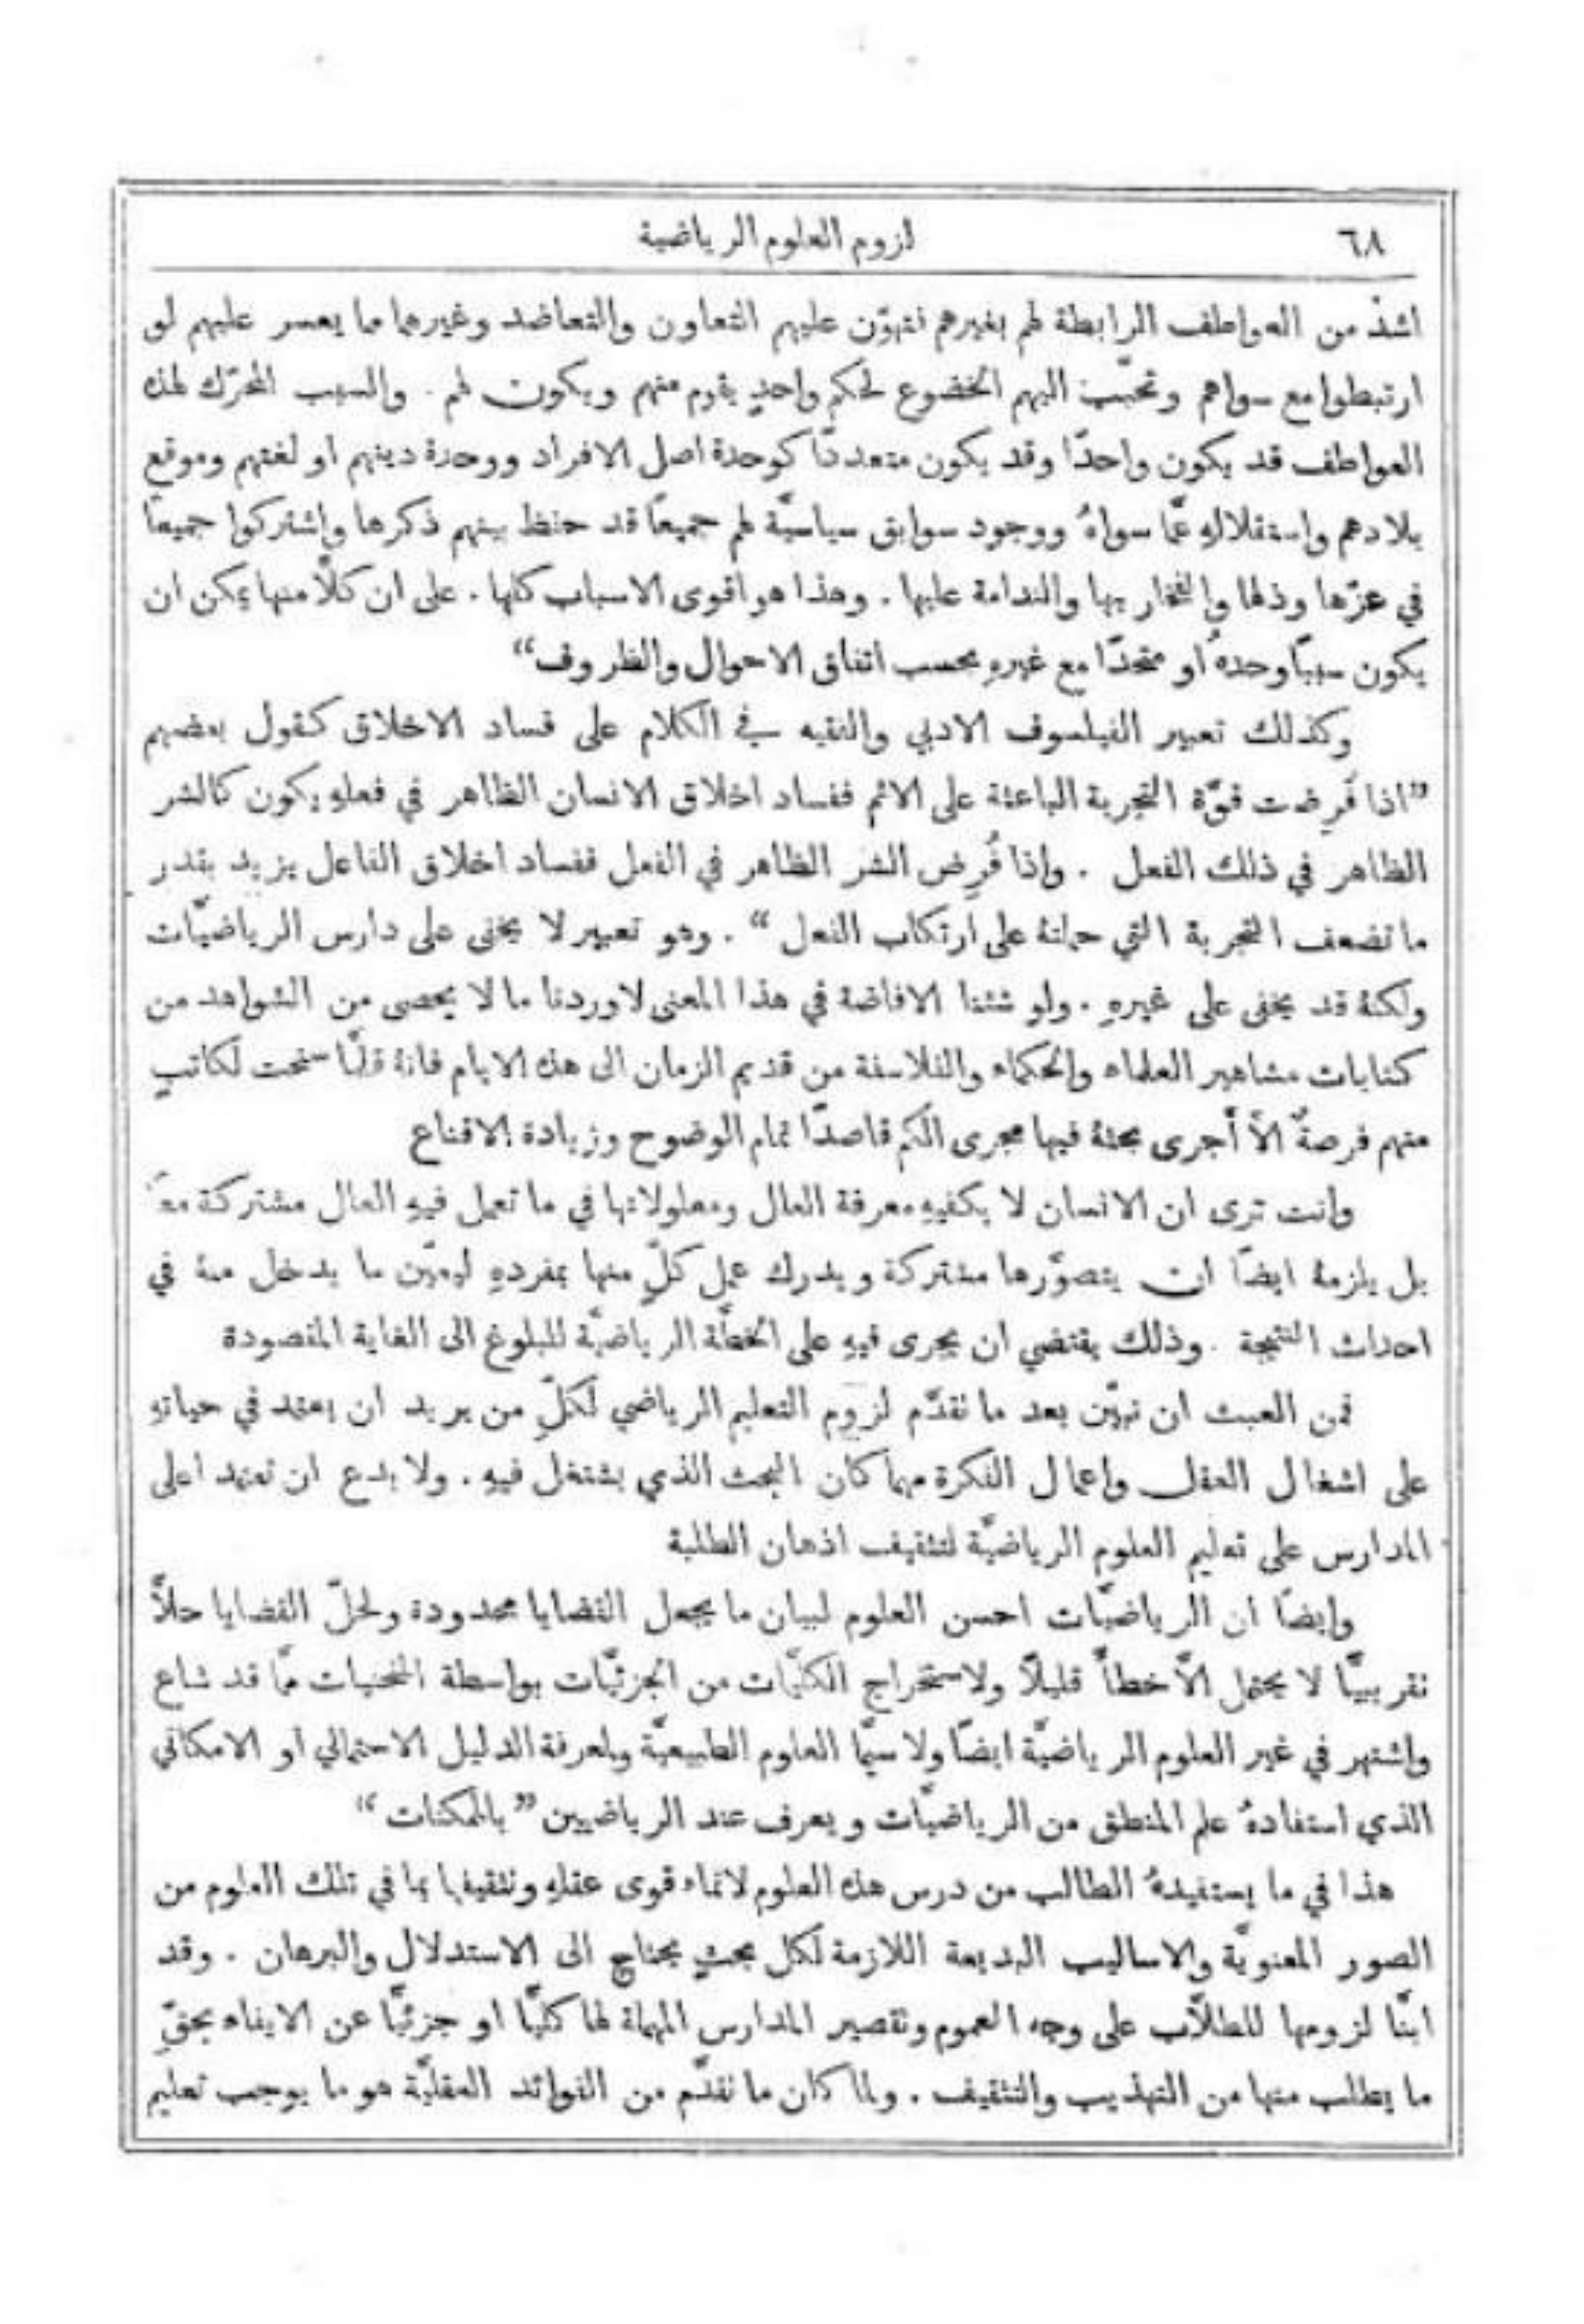 ٦٨
لزوم العلوم الرياضية
اشدّ من العواطف الرابطة لهم بغيرهم فتهوّن عليهم التعاون والتعاضد وغيرهما مما يعسر عليهم لو
ارتبطوا مع سواهم وتحبّب اليهم الخضوع لحكم واحدٍ يقوم منهم ويكون لهم . والسبب المحرّك لهذه
العواطف قد يكون واحدًا وقد يكون متعددًا كوحدة اصل الافراد ووحدة دينهم او لغتهم وموقع
بلادهم واستقلالهِ عمَّا سواهُ ووجود سوابق سياسيَّة لهم جميعًا قد حفظ بينهم ذكرها واشتركوا جميعًا
في عزّها وذلها والفخار بها والندامة عليها . وهذا هو اقوى الاسباب كلها . على ان كلًّا منها يمكن ان
يكون سببًا وحدهُ او متحدًا مع غيرهِ بحسب اتفاق الاحوال والظروف“
وكذلك تعبير الفيلسوف الادبي والفقيه في الكلام على فساد الاخلاق كقول بعضهم
”اذا فُرِضت قوَّة التجربة الباعثة على الاثم ففساد اخلاق الانسان الظاهر في فعلهِ يكون كالشر
الظاهر في ذلك الفعل . واذا فُرِض الشر الظاهر في الفعل ففساد اخلاق الفاعل يزيد بقدر
ما تضعف التجربة التي حملتهُ على ارتكاب الفعل“ . وهو تعبير لا يخفى على دارس الرياضيَّات
ولكنهُ قد يخفى على غيرهِ . ولو شئنا الافاضة في هذا المعنى لاوردنا ما لا يحصى من الشواهد من
كتابات مشاهير العلماء والحكماء والفلاسفة من قديم الزمان الى هذه الايام فانهُ قلَّما سنحت لكاتبٍ
منهم فرصةٌ الَّا أَجرى بحثهُ فيها مجرى الكم قاصدًا تمام الوضوح وزيادة الاقناع
وانت ترى ان الانسان لا يكفيهِ معرفة العلل ومعلولاتها في ما تعمل فيهِ العلل مشتركة معًا
بل يلزمهُ ايضًا ان يتصوَّرها مشتركة ويدرك عمل كلٍّ منها بمفردهِ ليميّن ما يدخل منهُ في
احداث النتيجة . وذلك يقتضي ان يجرى فيهِ على الخطَّة الرياضيَّة للبلوغ الى الغاية المقصودة
فمن العبث ان نبيّن بعد ما تقدَّم لزوم التعليم الرياضي لكلّ من يريد ان يعتمد في حياتهِ
على اشغال العقل واعمال الفكرة مهما كان البحث الذي يشتغل فيهِ . ولا بدع ان تعتمد اعلى
المدارس على تعليم العلوم الرياضيَّة لتثقيف اذهان الطلبة
وايضًا ان الرياضيَّات احسن العلوم لبيان ما يجعل القضايا محدودة ولحلّ القضايا حلًّا
تقريبيًّا لا يحتمل الَّا خطأً قليلًا ولاستخراج الكليَّات من الجزئيَّات بواسطة المنحنيات ممَّا قد شاع
واشتهر في غير العلوم الرياضيَّة ايضًا ولا سيَّما العلوم الطبيعيَّة ولمعرفة الدليل الاحتمالي او الامكاني
الذي استفادهُ علم المنطق من الرياضيَّات ويعرف عند الرياضيين ”بالممكنات“
هذا في ما يستفيدهُ الطالب من درس هذه العلوم لانماء قوى عقلهِ وتثقيفها بما في تلك العلوم من
الصور المعنويَّة والاساليب البديعة اللازمة لكل بحثٍ يحتاج الى الاستدلال والبرهان . وقد
ابنَّا لزومها للطلَّاب على وجه العموم وتقصير المدارس المهملة لها كليًّا او جزئيًّا عن الايفاء بحقّ
ما يطلب منها من التهذيب والتثقيف . ولما كان ما تقدَّم من الفوائد العقليَّة هو ما يوجب تعليم